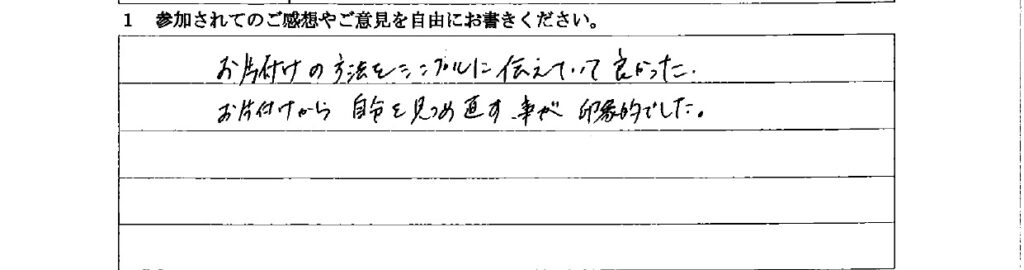 1 参加されてのご感想やご意見を自由にお書きください。
お片付けの方法をシンプルに伝えていて良かった.
お片付けから 自分を見つめ直す事が 印象的でした。